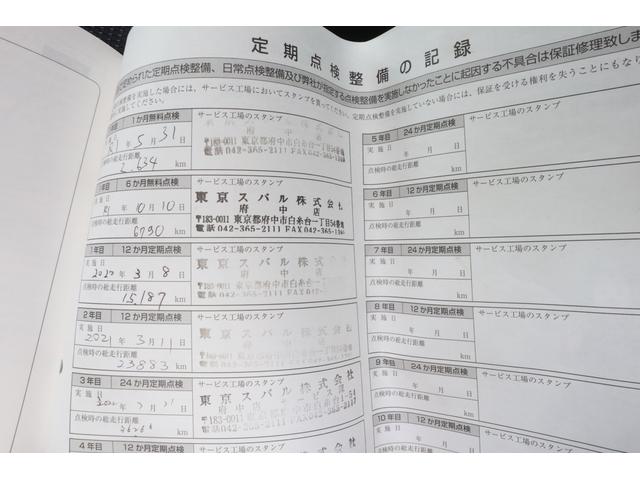 定期点検整備の記録
められた定期点検整備、日常点検整備及び弊社が指定する点検整備を実施しなかったことに起因する不具合は保証修理致しま
を実施した場合には、サービス工場においてスタンプを貰ってください。定期点検整備を実施していない場合には、保証を受ける権利を失うことにもな
してください。
1か月無料点検
サービス工場のスタンプ
年 5月 31日
点検時の総走行距離
2,634 km
府中店
183-0011 東京都府中市白糸台一丁目54番地
電話 042-365-2111 FAX 042-365-
6か月無料点検
サービス工場のスタンプ
年 10月 10日
点検時の総走行距離
6790 km
東京スバル株式会社
府中店
〒183-0011 東京都府中市白糸台一丁目54番地
電話 042-365-2111 FAX 042-365-
1年目 12か月定期点検
サービス工場のスタンプ
実施日
2020年 3月 8日
点検時の総走行距離
15,187 km
東京スバル株式会社
府中店
〒183-0011 東京都府中市白糸台一丁目54番地
電話 042-365-2111 FAX 042-365-
2年目 12か月定期点検
サービス工場のスタンプ
実施日
2021年 3月 11日
点検時の総走行距離
23883 km
東京スバル株式会社
3年目 24か月定期点検
サービス工場のスタンプ
実施日
年 月 日
点検時の総走行距離
km
東京スバル株式会社
〒183-0011 東京都府中市白糸台
電話 042-365-2111 FAX 042-365-2117
4年目 12か月定期点検
サービス工場のスタンプ
5年目 24か月定期点検
サービス工場のスタンプ
実施日
年 月 日
点検時の総走行距離
km
6年目 12か月定期点検
サービス工場のスタンプ
実施日
年 月 日
点検時の総走行距離
km
7年目 24か月定期点検
サービス工場のスタンプ
実施日
年 月 日
点検時の総走行距離
km
8年目 12か月定期点検
サービス工場のスタンプ
実施日
年 月 日
点検時の総走行距離
km
9年目 24か月定期点検
サービス工場のスタンプ
実施日
年 月 日
点検時の総走行距離
km
10年目 12か月定期点検
サービス工場のスタンプ
実施日
年 月 日
点検時の総走行距離
km